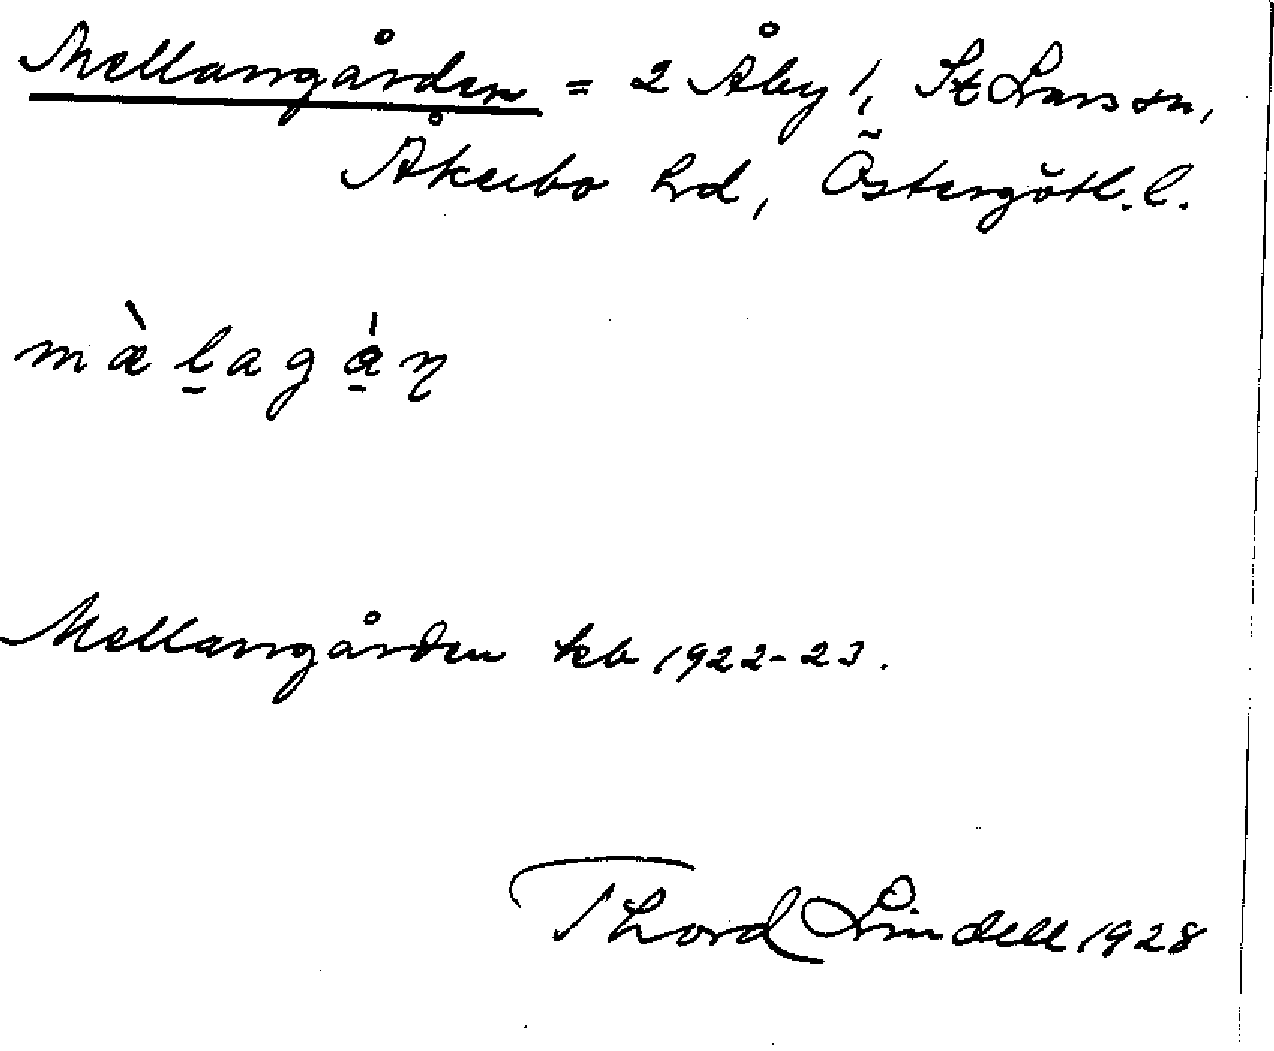 Mellangården = 2 Åby 1, St Lars sn,
Åkerbo hd, Östergötl. l.
mæ̀l̠agá̠ɳ
Mellangården kb 1922-23.
Thord Lindell 1928